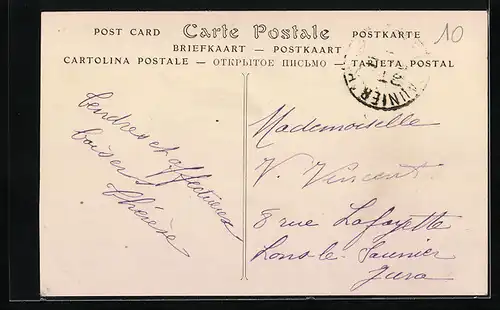 POST CARD Carte Postale POSTKARTE
BRIEFKAART — POSTKAART
CARTOLINA POSTALE — ОТКРЫТОЕ ПИСЬМО — TARJETA POSTAL
10
Tendres et affectueux
baisers
Thérèse
Mademoiselle
V. Vincent
8 rue Lafayette
Lons-le-Saunier
Jura